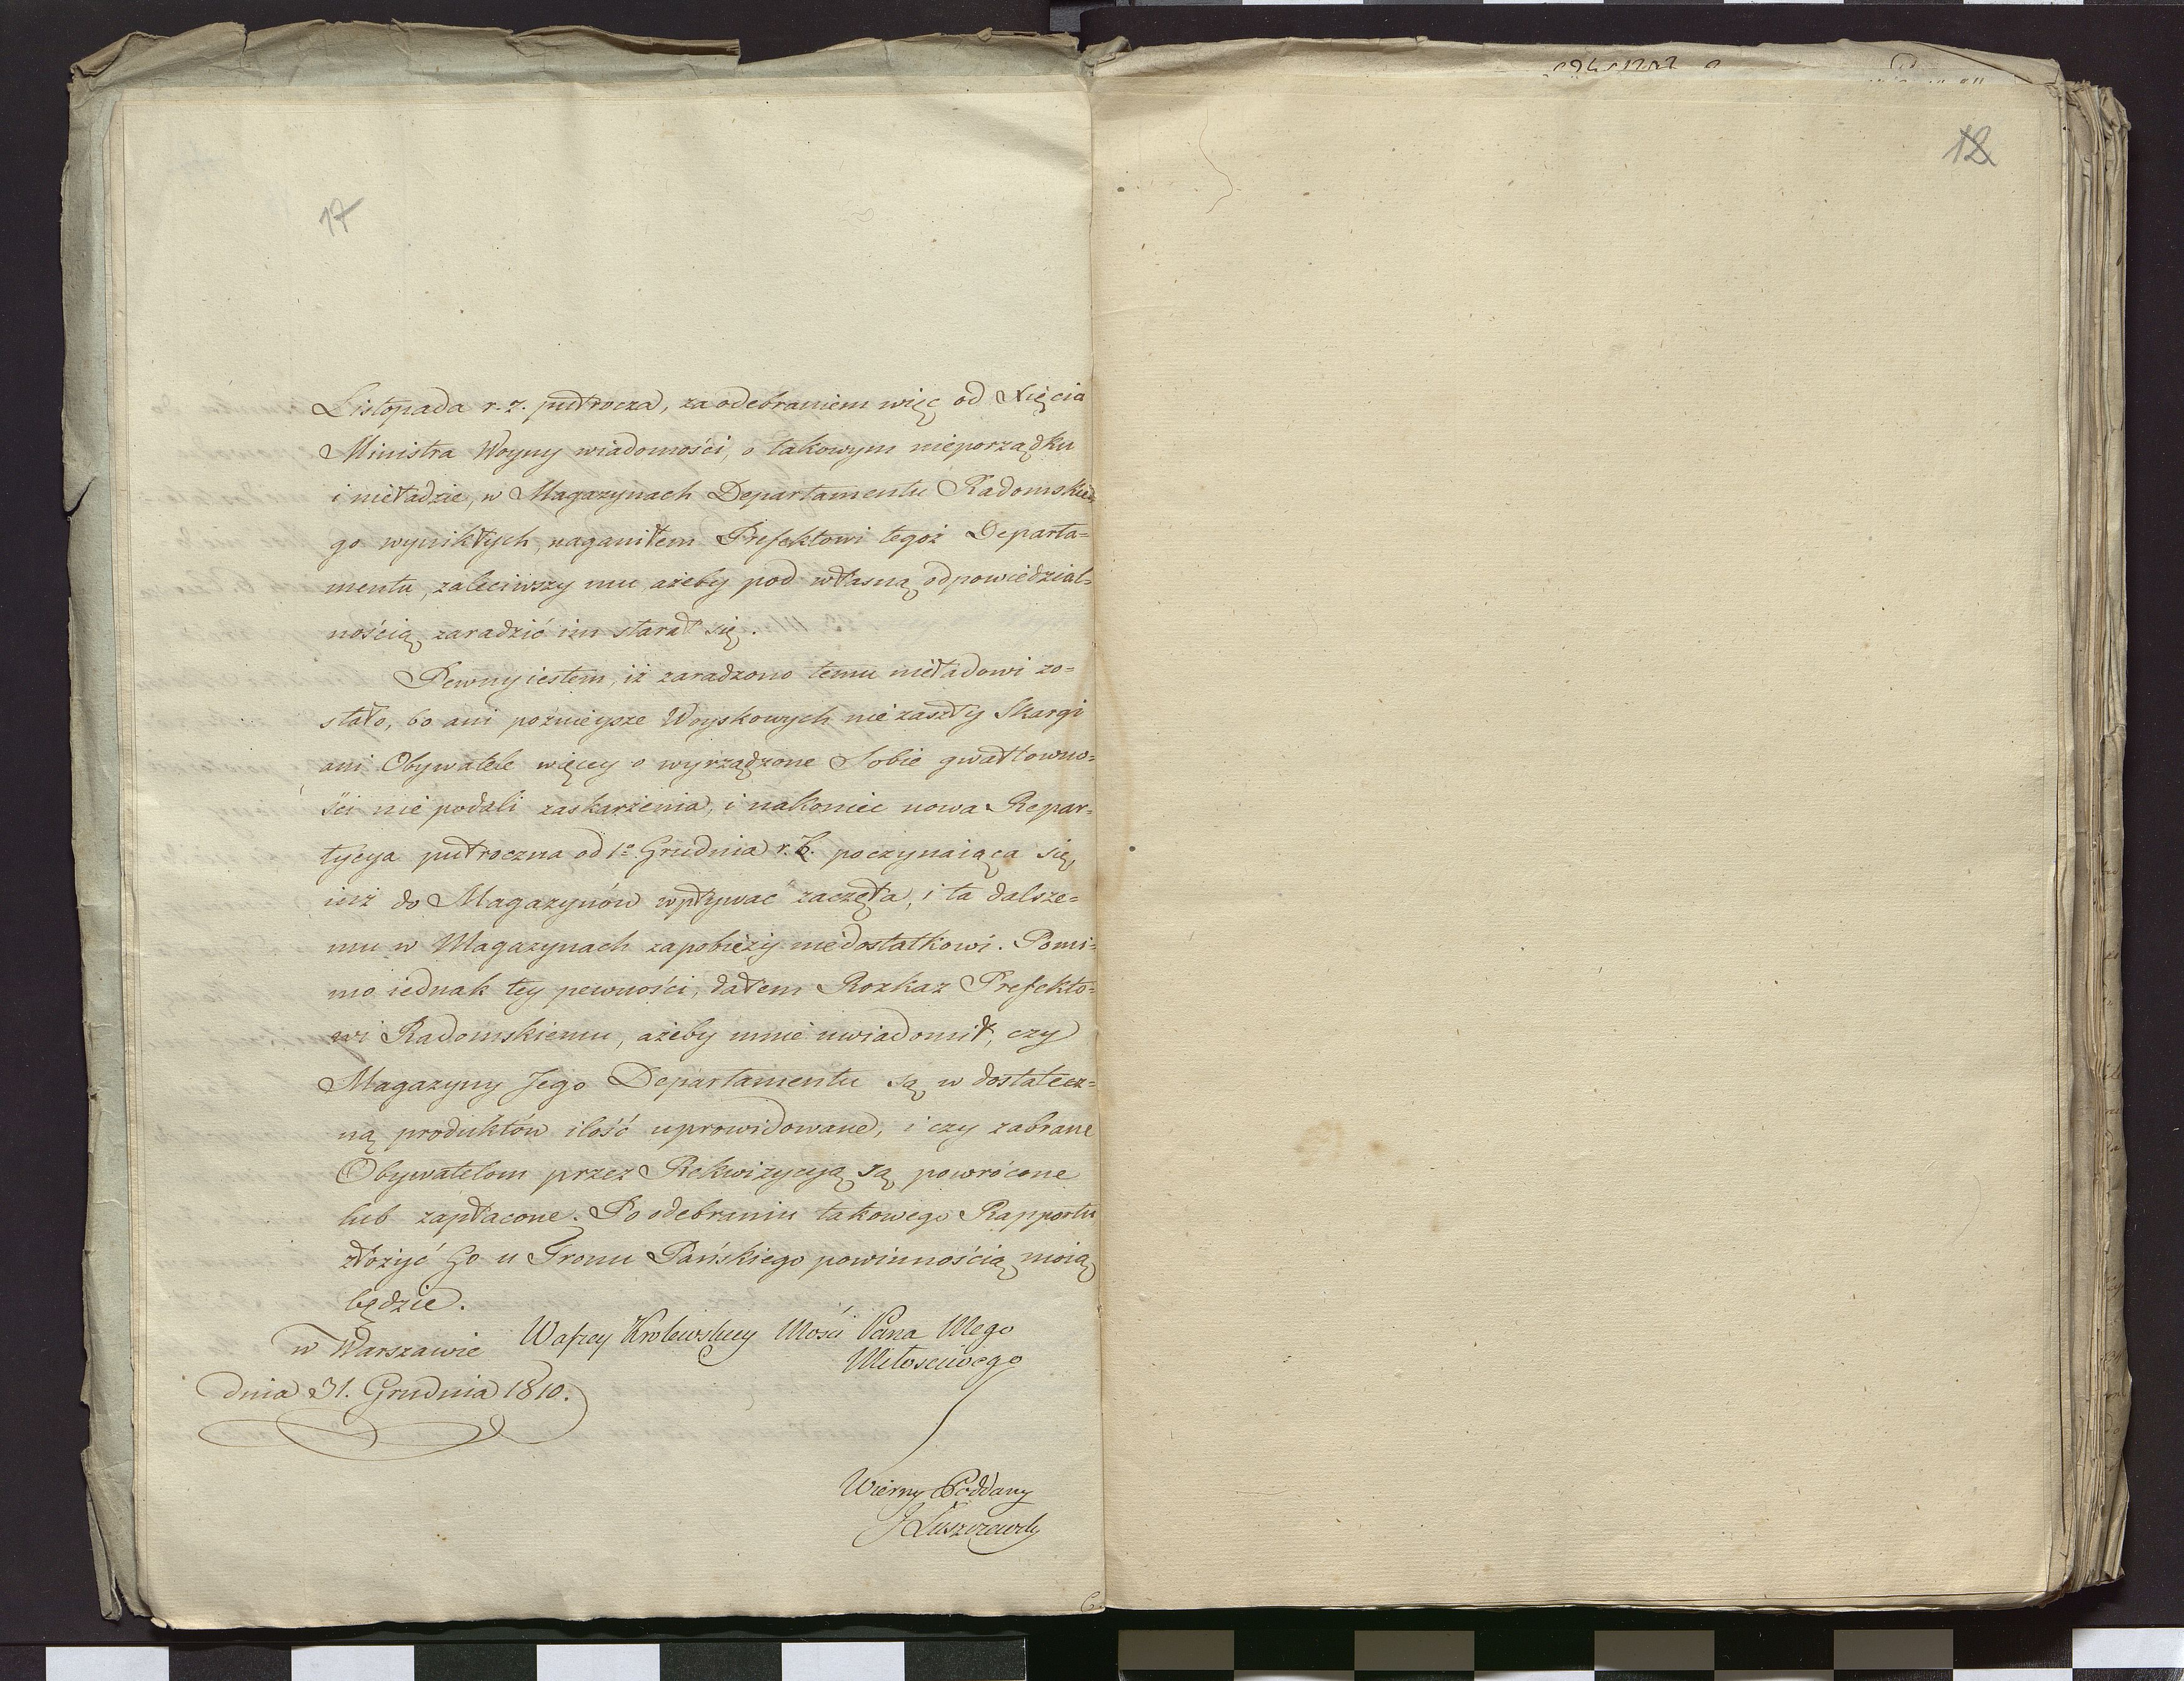 17
Listopada r. z. pułrocza, za odebraniem więc od Xięcia
Ministra Woyny wiadomości, o takowym nieporządku
i nieładzie, w Magazynach Departamentu Radomskie-
go wynikłych, naganiłem Prefektowi tegoż Departa=
mentu, zaleciwszy mu ażeby pod własną odpowiedzial=
nością zaradzić im starał się.
Pewny iestem, iż zaradzono temu nieładowi zo=
stało, bo ani poźnieysze Woyskowych nie zaszły Skargi
ani Obywatele więcey o wyrządzone Sobie gwałtowno=
ści nie podali zaskarżenia, i nakoniec nowa Repar=
tycya pułroczna od 1o Grudnia r. b. poczynaiąca się,
iuż do Magazynów wpływać zaczęła, i ta dalsze=
mu w Magazynach zapobieży niedostatkowi. Pomi=
mo iednak tey pewności, dałem Rozkaz Prefekto=
wi Radomskiemu, ażeby mnie uwiadomił, czy
Magazyny Jego Departamentu są w dostatecz=
ną produktów ilość uprowidowane, i czy zabrane
Obywatelom przez Rekwizycyą są powrócone
lub zapłacone. Po odebraniu takowego Rapportu
złożyć Go u Tronu Pańskiego powinnością moią
będzie.
w Warszawie Waszey Krolewskiey Mości Pana Mego
Miłosciwego
dnia 31. Grudnia 1810.
Wierny Poddany
J Łuszczewski
12